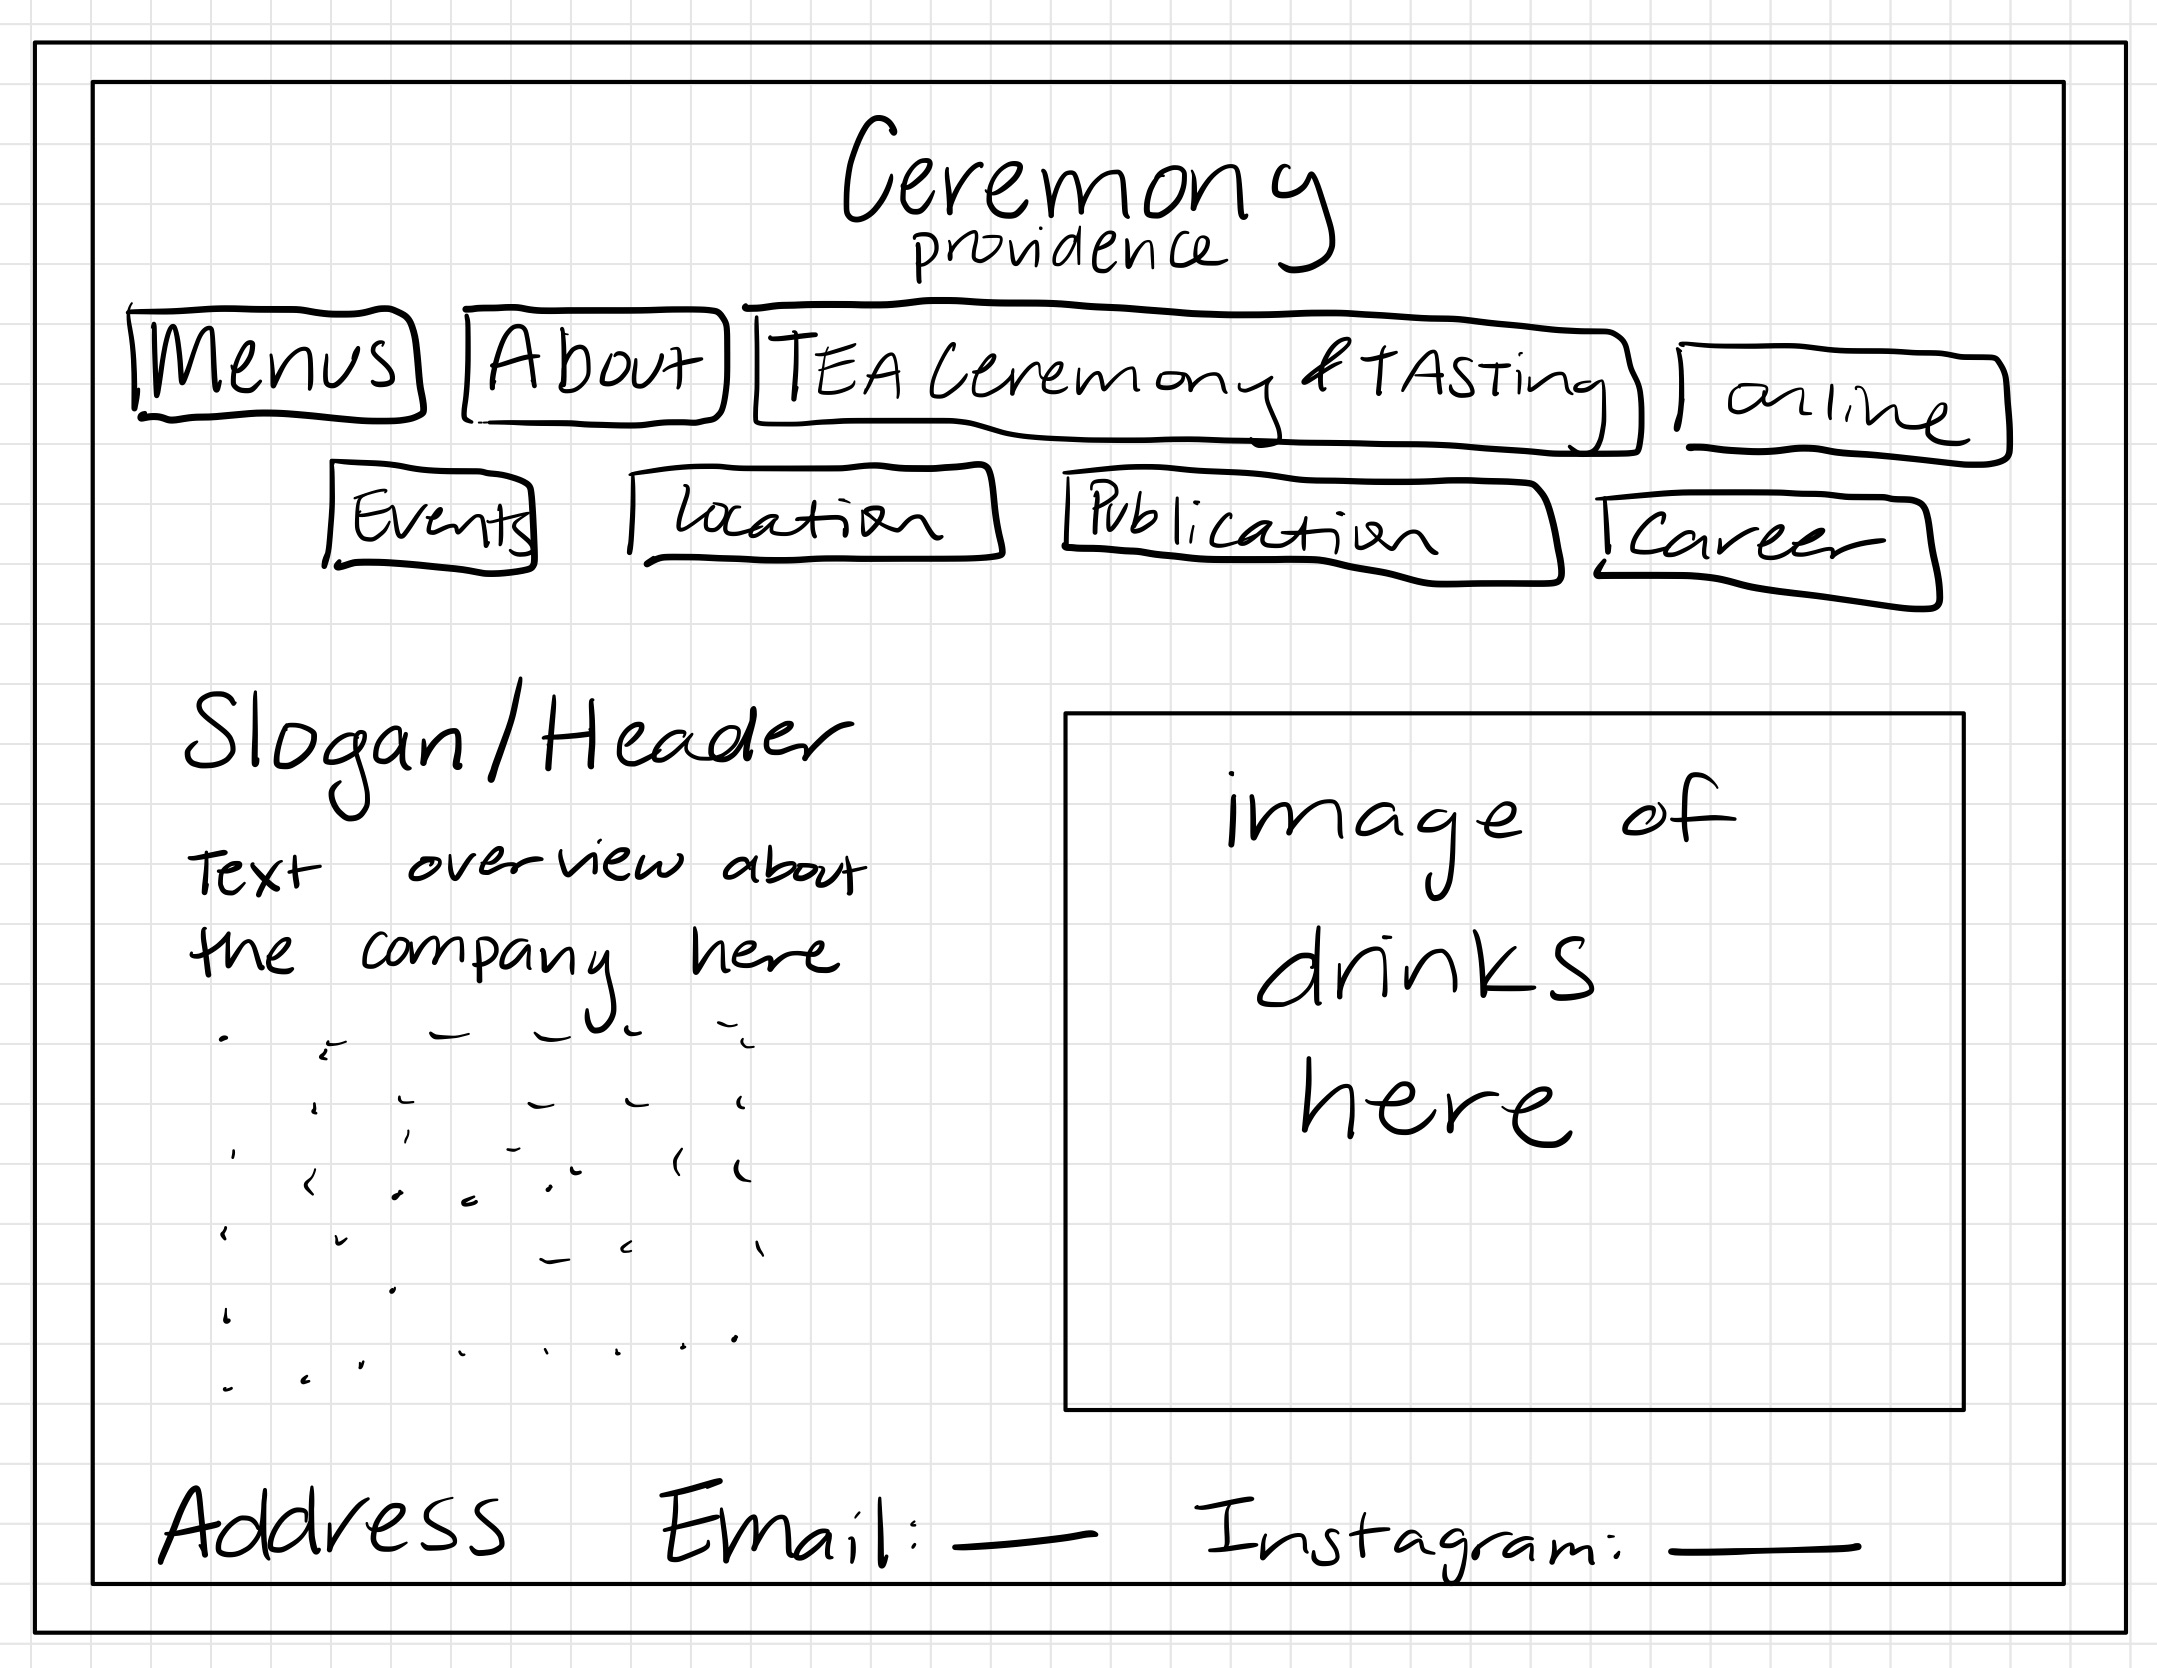 Ceremony
providence
Menus About TEA Ceremony & tAsting online
Events Location Publication Career
Slogan/Header
Text overview about
the company here
image of
drinks
here
Address Email: Instagram: